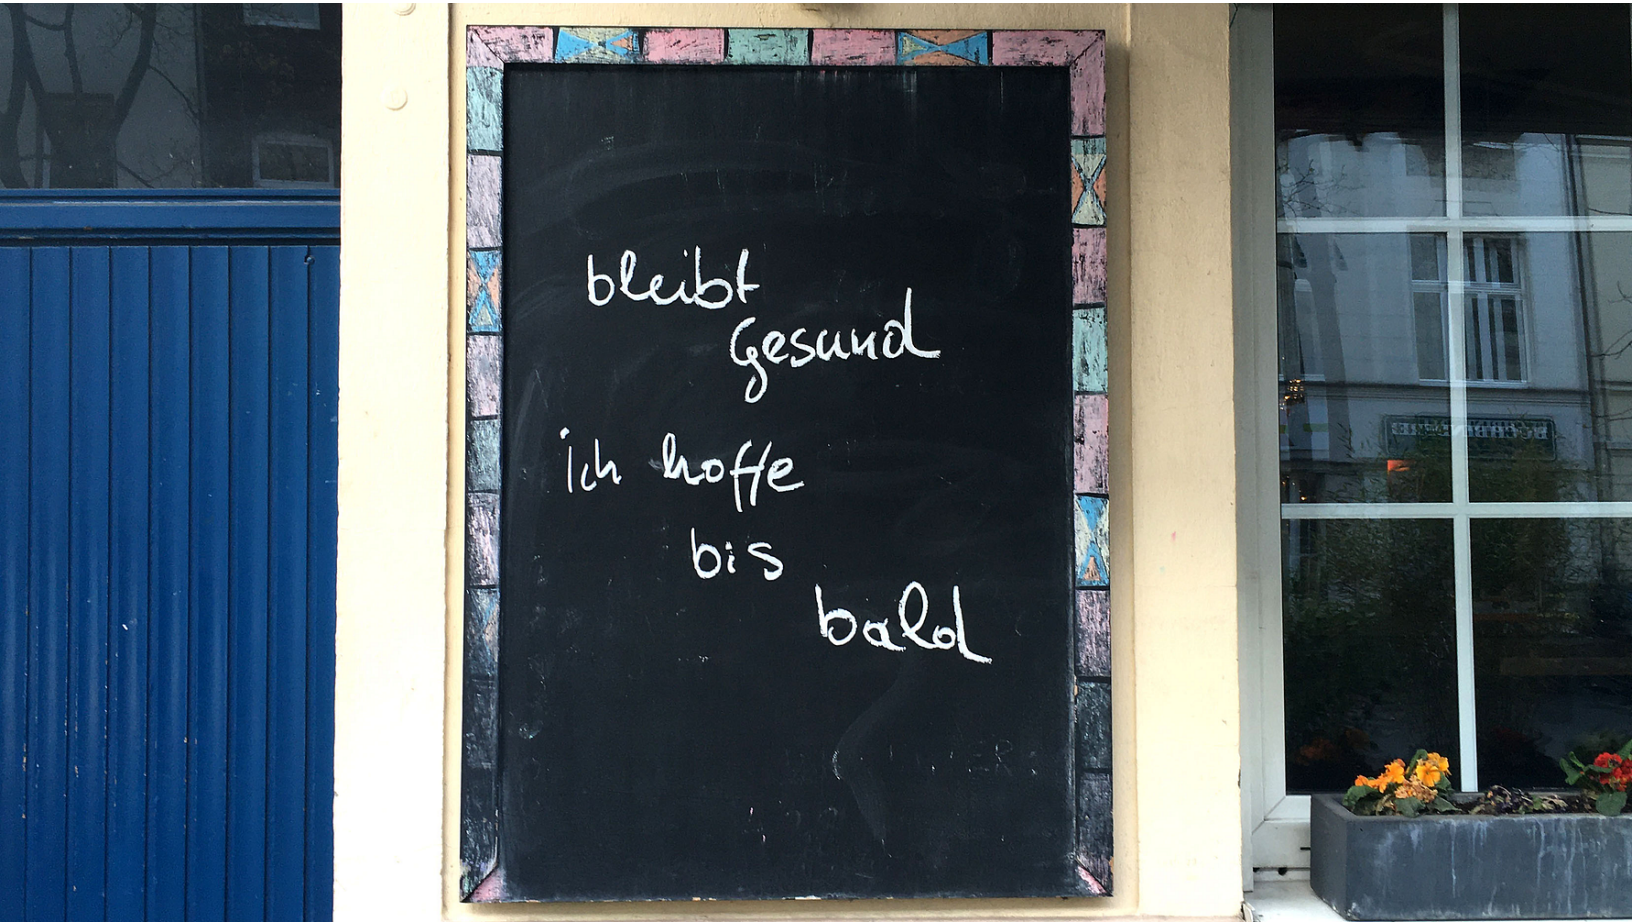 bleibt
gesund
ich hoffe
bis
bald